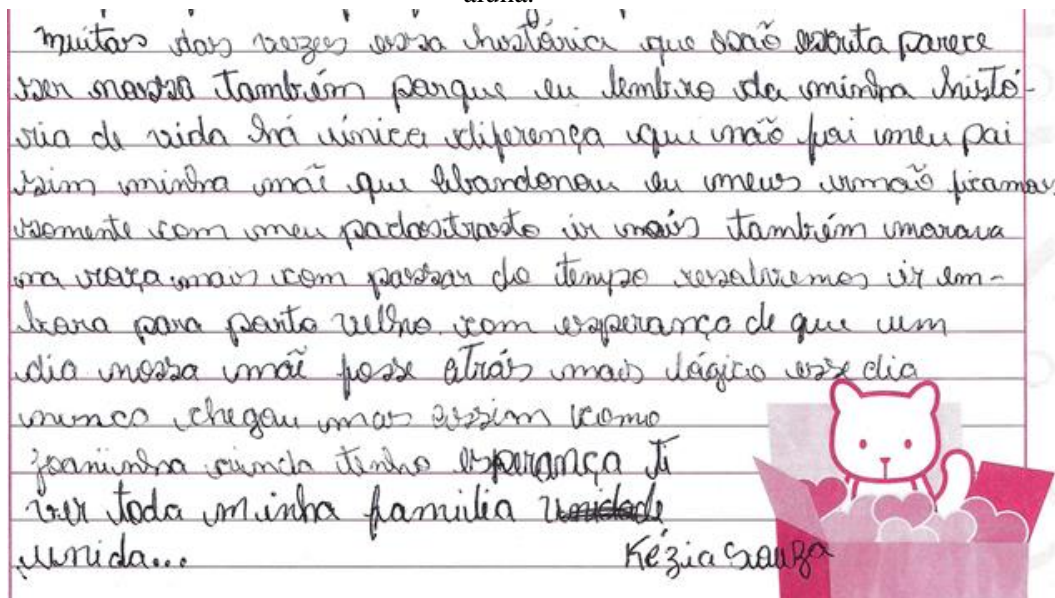 aluna.
muitas das vezes essa história que são escuta parece
ser nossa também porque eu lembro da minha histó-
ria de vida há única diferença que não foi meu pai
sim minha mãe que abandonou eu meus irmão ficamos
somente com meu padastrasto ir mais também morava
na roça mais com passar do tempo resolvemos ir em-
bora para porto velho com esperança de que um
dia nossa mãe fosse atrás mais lágico esse dia
nunca chegou mas assim como
joaninha ainda tenho esperança ti
ver toda minha familia
unida...
Kézia Souza